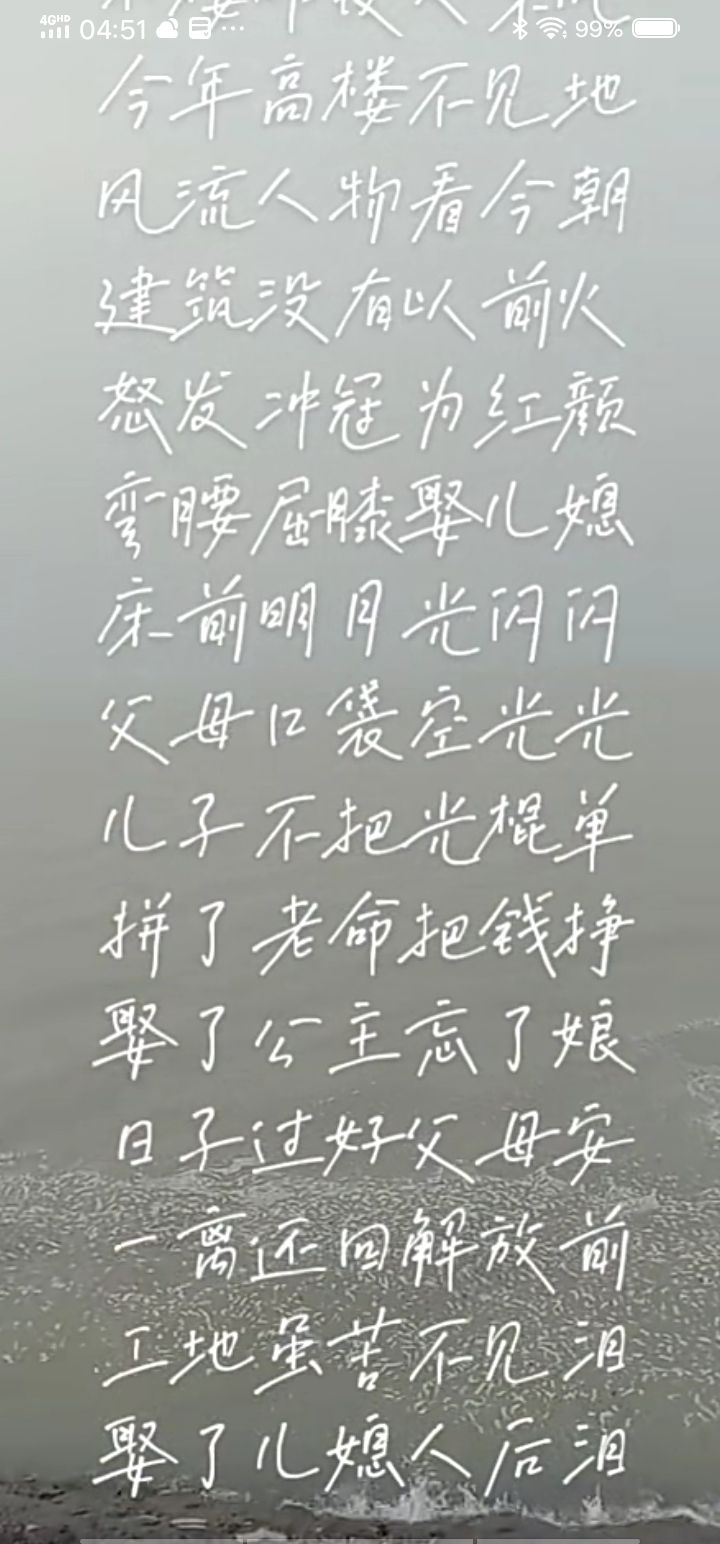 04:51
99%
今年高楼不见地
风流人物看今朝
建筑没有以前火
怒发冲冠为红颜
弯腰屈膝娶儿媳
床前明月光闪闪
父母口袋空光光
儿子不把光棍单
拼了老命把钱挣
娶了公主忘了娘
日子过好父母安
一离还回解放前
工地虽苦不见泪
娶了儿媳人后泪